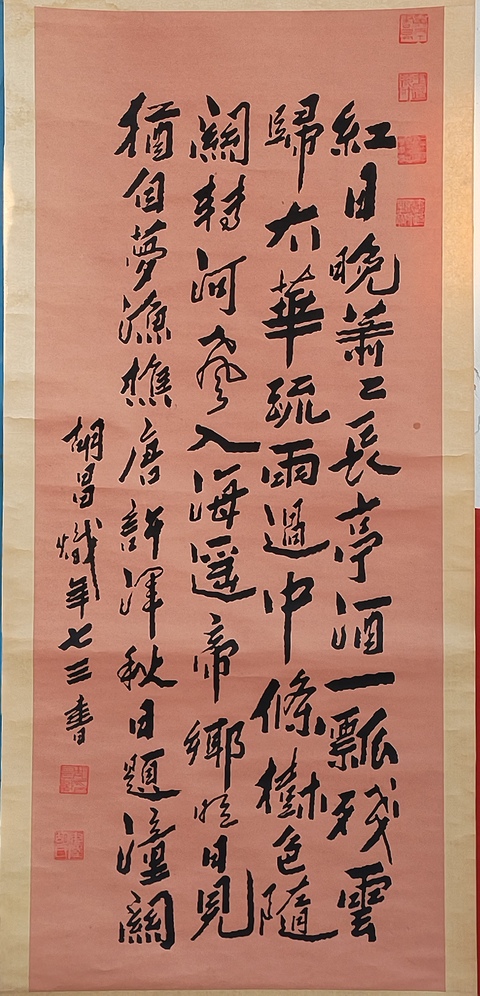 紅日晚蕭〻長亭酒一瓢殘雲
歸太華疏雨過中條樹色隨
關轉河聲入海遙帝鄉明日見
猶自夢漁樵唐許渾秋日題潼關
胡昌熾年七三書